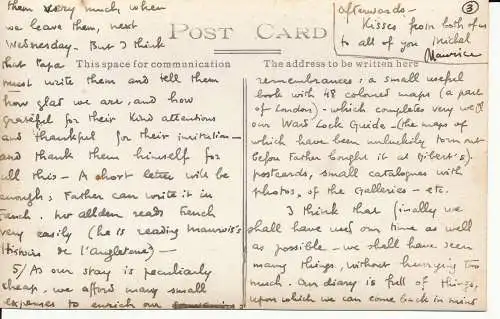 them very much when
we leave them, next
Wednesday. But I think
that Papa
must write them and tell them
how glad we are, and how
grateful for their kind attentions
and thankful for their invitation—
and thank them himself for
all this— A short letter will be
enough; Father can write it in
French. Mr Allden reads French
very easily (he is reading Maurois's
Histoire de l'Angleterre)—
5/ As our stay is peculiarly
cheap, we afford many small
expenses to enrich our
POST CARD
This space for communication
The address to be written here
3
afterwards—
Kisses from both of us
to all of you
Maurice
remembrances: a small useful
book with 48 coloured maps (a part
of London)- which completes very well
our Ward Lock Guide—(the maps of
which have been unluckily torn out
before Father bought it at Gibert's).
postcards, small catalogues with
photos, of the Galleries - etc.
I think that finally we
shall have used our time as well
as possible - we shall have seen
many things, without hurrying too
much. Our diary is full of things,
upon which we can come back in mind